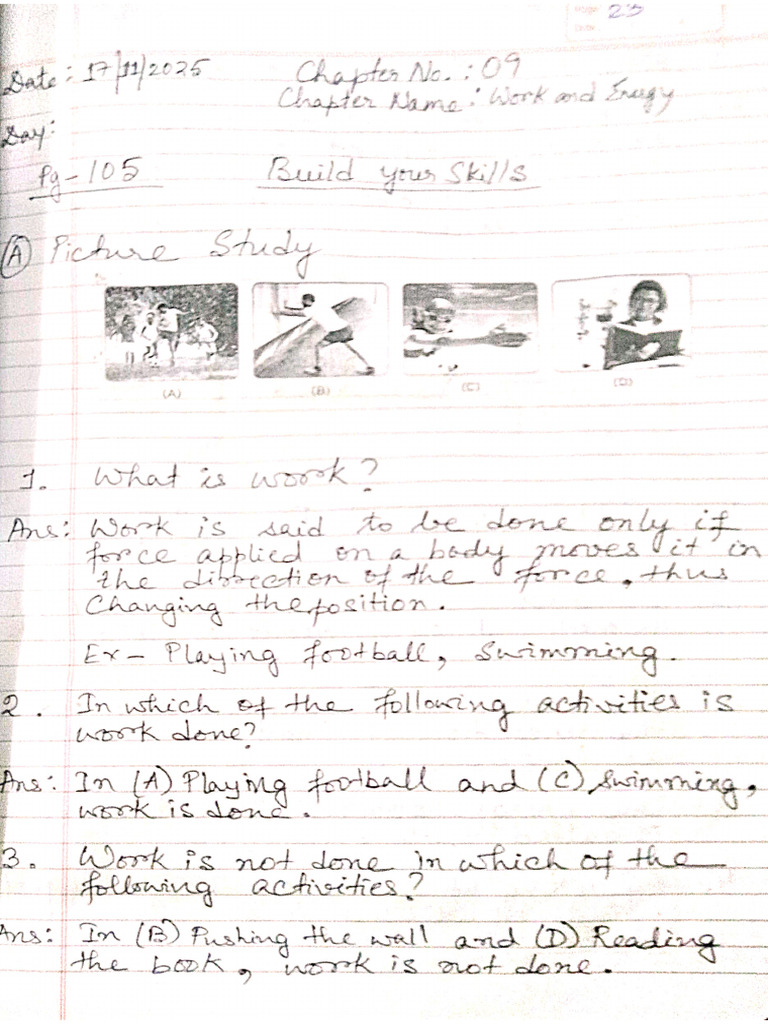 23
Date: 17/11/2025
Chapter No.: 09
Chapter Name: Work and Energy
Day:
Pg-105
Build your Skills
(A) Picture Study
(A) (B) (C) (D)
1. What is work?
Ans: Work is said to be done only if
force applied on a body moves it in
the direction of the force, thus
Changing the position.
Ex- Playing football, Swimming.
2. In which of the following activities is
work done?
Ans: In (A) Playing football and (C) Swimming,
work is done.
3. Work is not done in which of the
following activities?
Ans: In (B) Pushing the wall and (D) Reading
the book, work is not done.